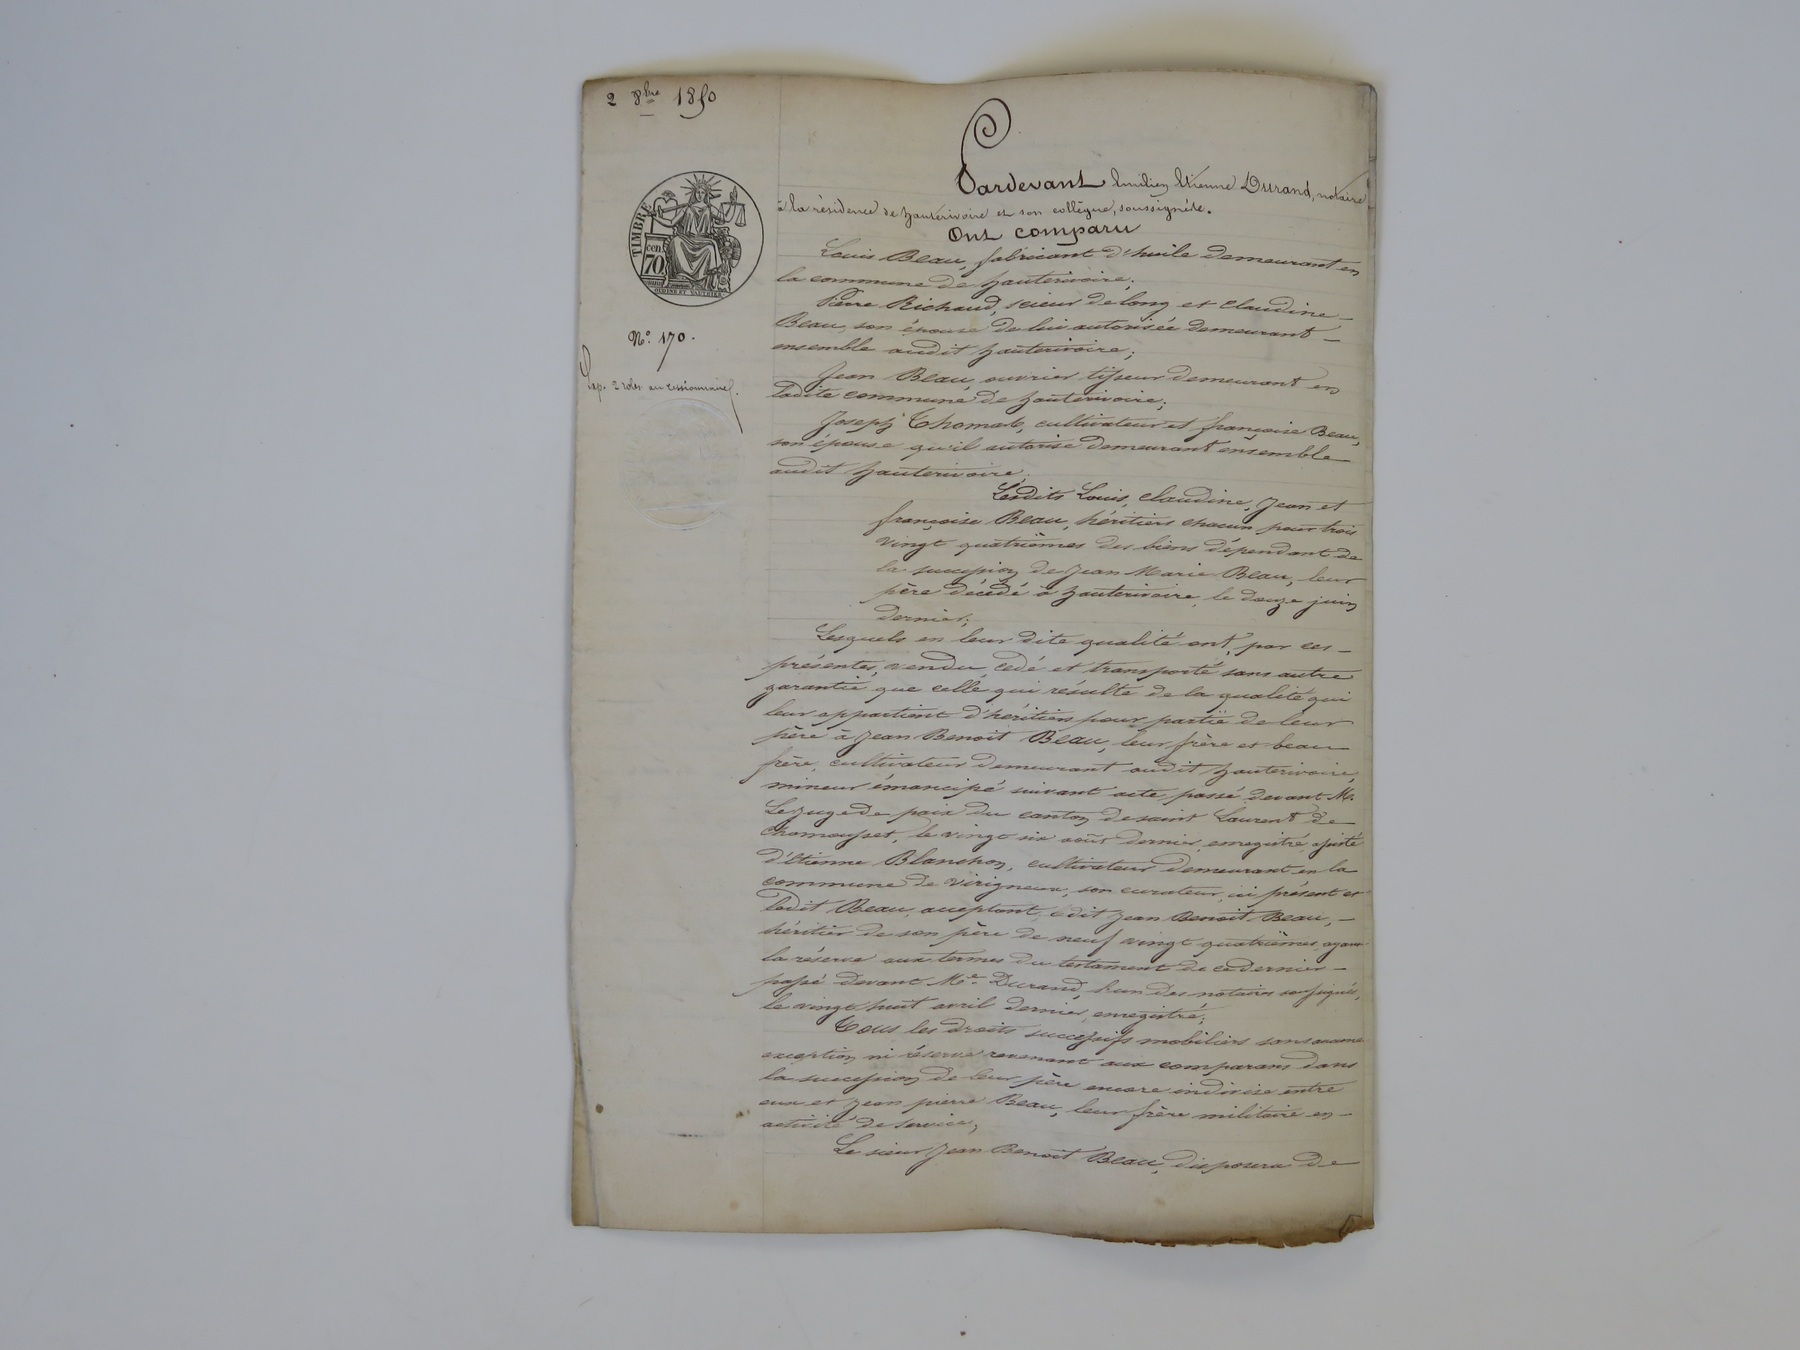 2 8bre 1850
Pardevant Emilien Etienne Durand, notaire
à la résidence de hauterivoire et son collègue, soussignés.
Ont comparu
TIMBRE
cen
70
OUDINE ET VAUTHIER
Louis Beau, fabricant d'huile demeurant en
la commune de hauterivoire;
Pierre Richaud, scieur de long et Claudine
Beau, son épouse de lui autorisée demeurant
ensemble audit hauterivoire;
No. 170.
Exp. 2 roles au cessionnaire.
Jean Beau, ouvrier tisseur demeurant en
ladite commune de hauterivoire;
Joseph Thomas, cultivateur et françoise Beau,
son épouse qu'il autorise demeurant ensemble
audit hauterivoire
Lesdits Louis, Claudine, Jean et
françoise Beau, héritiers chacun pour trois
vingt quatrièmes des biens dépendant de
la succession de Jean Marie Beau, leur
père décédé à hauterivoire, le douze juin
dernier;
Lesquels en leur dite qualité ont, par ces
présentes, vendu, cédé et transporté sans autre
garantie que celle qui résulte de la qualité qui
leur appartient d'héritiers pour partie de leur
père à Jean Benoit Beau, leur frère et beau
frère, cultivateur demeurant audit hauterivoire,
mineur émancipé suivant acte passé devant Mr.
Le juge de paix du canton de saint Laurent de
chamousset, le vingt six août dernier, enregistré assisté
d'Etienne Blanchon, cultivateur demeurant en la
commune de Virigneux, son curateur, ici présent et
ledit Beau, acceptant, ledit Jean Benoit Beau,
héritier de son père de neuf vingt quatrièmes, ayant
la réserve aux termes du testament de ce dernier
passé devant Me. Durand, l'un des notaires soussignés,
le vingt huit avril dernier, enregistré;
Tous les droits successifs mobiliers sans aucune
exception ni réserve revenant aux comparans dans
la succession de leur père encore indivise entre
eux et Jean pierre Beau, leur frère militaire en
activité de service;
Le sieur Jean Benoit Beau, disposera de